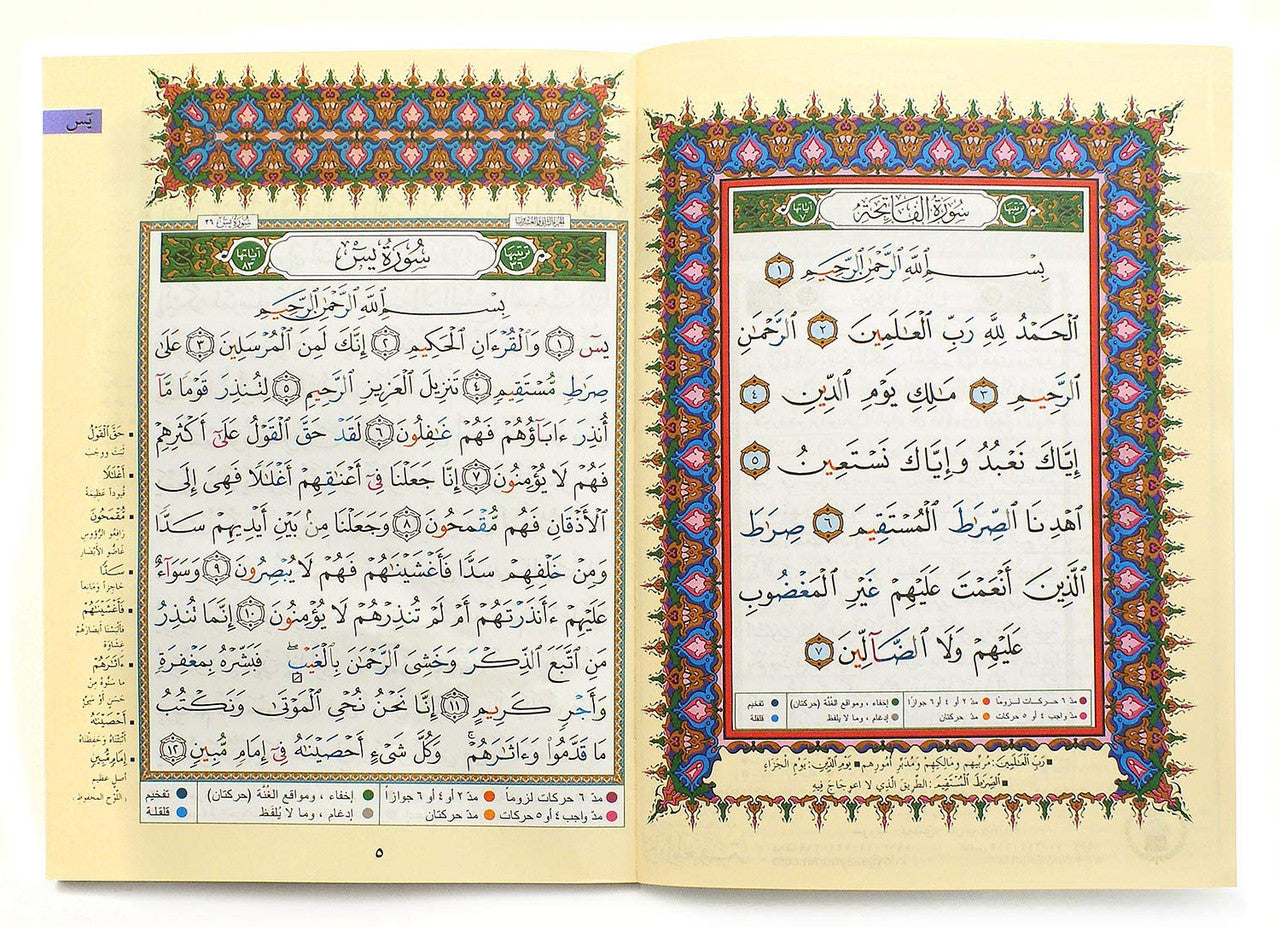 سورة الفاتحة
ترتيبها ١
آياتها ٧
بِسْمِ ٱللَّهِ ٱلرَّحْمَٰنِ ٱلرَّحِيمِ ١
ٱلْحَمْدُ لِلَّهِ رَبِّ ٱلْعَٰلَمِينَ ٢ ٱلرَّحْمَٰنِ
ٱلرَّحِيمِ ٣ مَٰلِكِ يَوْمِ ٱلدِّينِ ٤
إِيَّاكَ نَعْبُدُ وَإِيَّاكَ نَسْتَعِينُ ٥
ٱهْدِنَا ٱلصِّرَٰطَ ٱلْمُسْتَقِيمَ ٦ صِرَٰطَ
ٱلَّذِينَ أَنْعَمْتَ عَلَيْهِمْ غَيْرِ ٱلْمَغْضُوبِ
عَلَيْهِمْ وَلَا ٱلضَّآلِّينَ ٧
مدّ ٦ حركات لزوماً مدّ ٢ أو ٤ أو ٦ جوازاً إخفاء ، ومواقع الغُنَّة (حركتان) تفخيم
مدّ واجب ٤ أو ٥ حركات مدّ حركتان إدغام ، وما لا يلفظ قلقلة
رَبِّ الْعَالَمِينَ: مُرَبِّيهم وَمَالِكِهِمْ وَمُدَبِّرِ أُمُورِهِم يَوْمِ الدِّينِ: يَوْمِ الْجَزَاءِ
الصِّرَاطَ الْمُسْتَقِيمَ: الطريق الذي لا اعوجاج فيه
يسٓ
سورة يسٓ ٣٦
سُورَةُ يسٓ
ترتيبها ٣٦
آياتها ٨٣
بِسْمِ ٱللَّهِ ٱلرَّحْمَٰنِ ٱلرَّحِيمِ
يسٓ ١ وَٱلْقُرْءَانِ ٱلْحَكِيمِ ٢ إِنَّكَ لَمِنَ ٱلْمُرْسَلِينَ ٣ عَلَىٰ
صِرَٰطٍ مُّسْتَقِيمٍ ٤ تَنزِيلَ ٱلْعَزِيزِ ٱلرَّحِيمِ ٥ لِتُنذِرَ قَوْمًا مَّآ
أُنذِرَ ءَابَآؤُهُمْ فَهُمْ غَٰفِلُونَ ٦ لَقَدْ حَقَّ ٱلْقَوْلُ عَلَىٰٓ أَكْثَرِهِمْ
فَهُمْ لَا يُؤْمِنُونَ ٧ إِنَّا جَعَلْنَا فِىٓ أَعْنَٰقِهِمْ أَغْلَٰلًا فَهِىَ إِلَى
ٱلْأَذْقَانِ فَهُم مُّقْمَحُونَ ٨ وَجَعَلْنَا مِنۢ بَيْنِ أَيْدِيهِمْ سَدًّا
وَمِنْ خَلْفِهِمْ سَدًّا فَأَغْشَيْنَٰهُمْ فَهُمْ لَا يُبْصِرُونَ ٩ وَسَوَآءٌ
عَلَيْهِمْ ءَأَنذَرْتَهُمْ أَمْ لَمْ تُنذِرْهُمْ لَا يُؤْمِنُونَ ١٠ إِنَّمَا تُنذِرُ
مَنِ ٱتَّبَعَ ٱلذِّكْرَ وَخَشِىَ ٱلرَّحْمَٰنَ بِٱلْغَيْبِ ۖ فَبَشِّرْهُ بِمَغْفِرَةٍ
وَأَجْرٍ كَرِيمٍ ١١ إِنَّا نَحْنُ نُحْىِ ٱلْمَوْتَىٰ وَنَكْتُبُ
مَا قَدَّمُوا۟ وَءَاثَٰرَهُمْ ۚ وَكُلَّ شَىْءٍ أَحْصَيْنَٰهُ فِىٓ إِمَامٍ مُّبِينٍ ١٢
حَقَّ الْقَوْلُ
ثبت ووجب
أَغْلَٰلًا
قيوداً عظيمة
مُّقْمَحُونَ
رافعو الرؤوس
غاضّو الأبصار
سَدًّا
حاجزاً ومانعاً
فَأَغْشَيْنَٰهُمْ
فألبسنا أبصارهم
غشاوة
ءَاثَٰرَهُمْ
ما سنّوه من
حسن أو سيئ
أَحْصَيْنَٰهُ
أثبتناه وحفظناه
إِمَامٍ مُّبِينٍ
أصل عظيم
(اللوح المحفوظ)
مدّ ٦ حركات لزوماً مدّ ٢ أو ٤ أو ٦ جوازاً إخفاء ، ومواقع الغُنَّة (حركتان) تفخيم
مدّ واجب ٤ أو ٥ حركات مدّ حركتان إدغام ، وما لا يُلفَظ قلقلة
٥